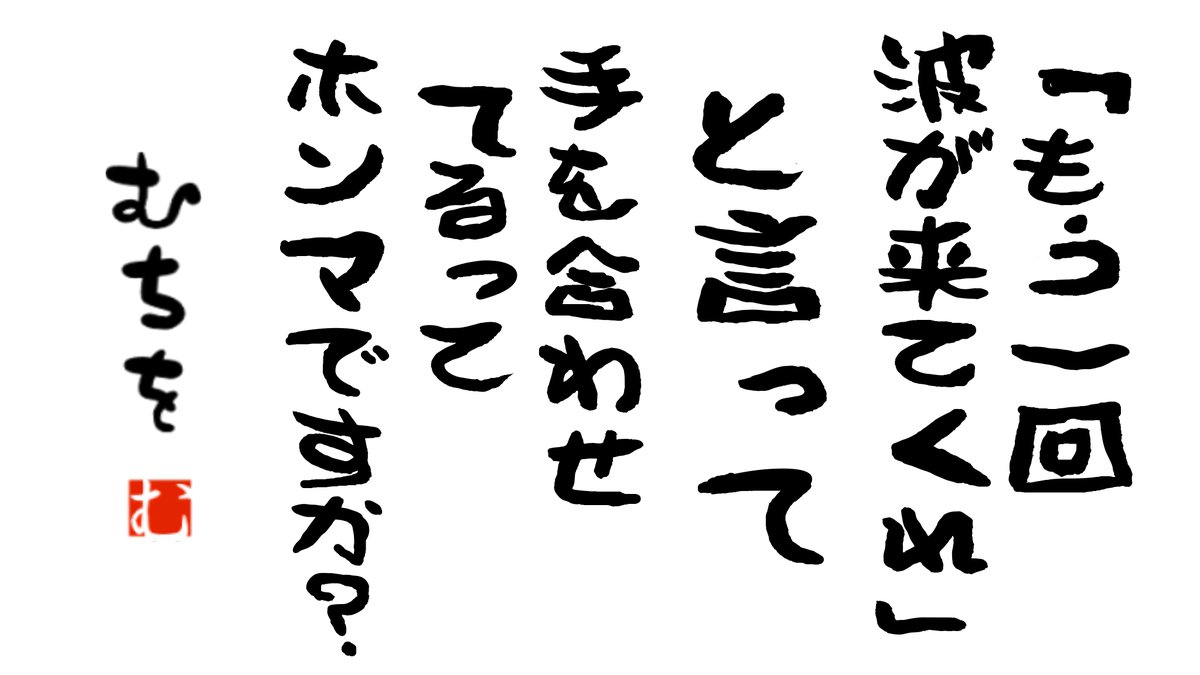 「もう一回
波が来てくれ」
と言って
手を合わせ
てるって
ホンマですか？
むちを
む